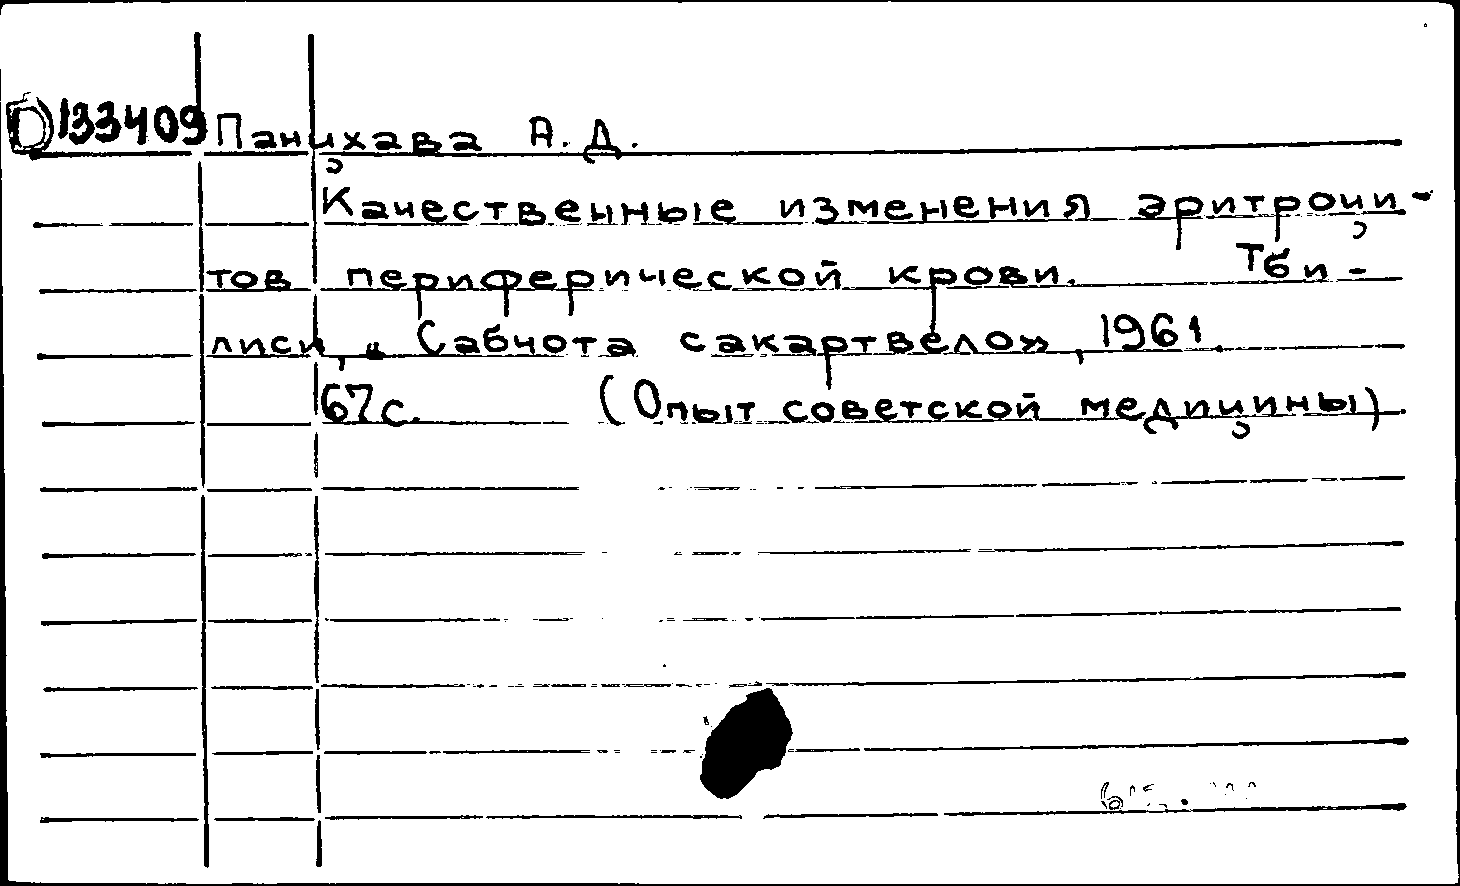 D133409 Паницхава А. Д.
Качественные изменения эритроци-
тов периферической крови. Тби-
лиси, „Сабчота сакартвело», 1961.
67с. (Опыт советской медицины)